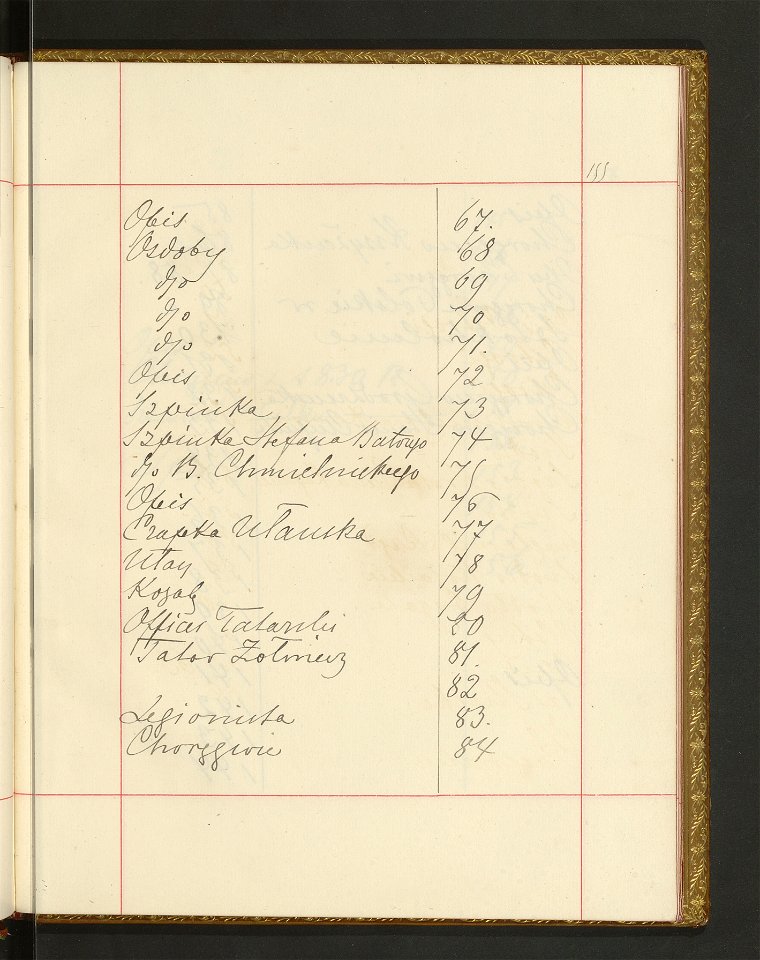 155
Opis 67.
Ozdoby 68
d/o 69
d/o 70
d/o 71.
Opis 72
Szpinka 73
Szpinka Stefana Batorego 74
d/o B. Chmielnickiego 75
Opis 76
Czapka Ułańska 77
Ułan 78
Kozak 79
Officer Tatarski 80
Tatar Żołnierz 81.
82
Legionista 83.
Chorągwie 84